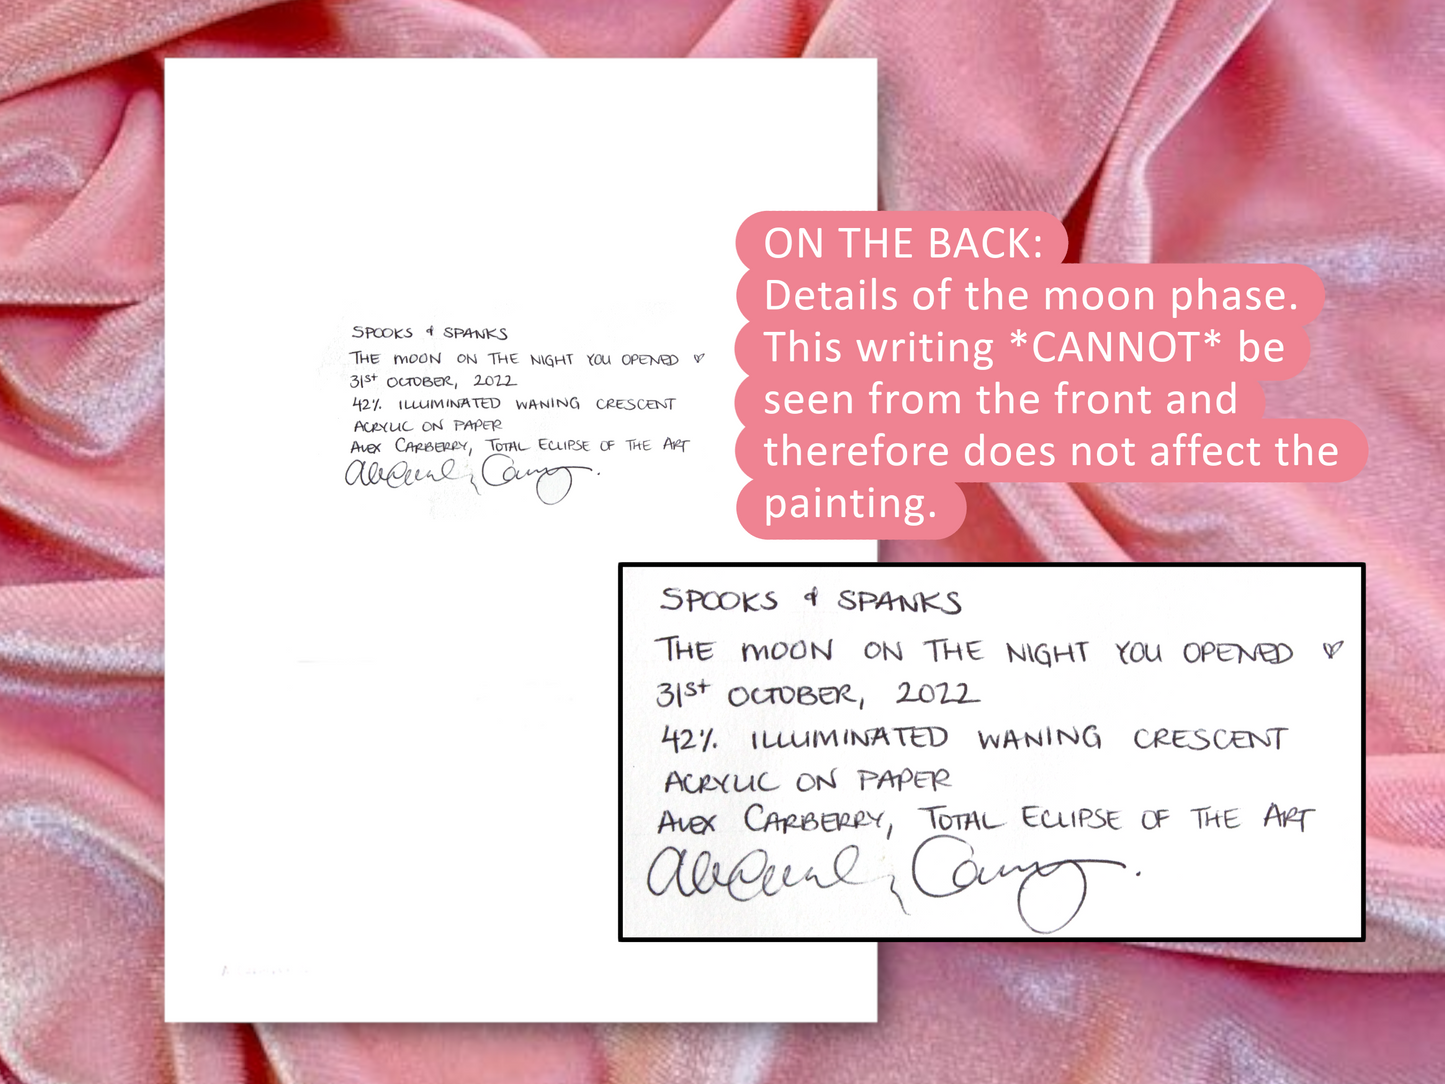 SPOOKS & SPANKS
THE MOON ON THE NIGHT YOU OPENED ♡
31st OCTOBER, 2022
42% ILLUMINATED WANING CRESCENT
ACRYLIC ON PAPER
ALEX CARBERRY, TOTAL ECLIPSE OF THE ART
ON THE BACK:
Details of the moon phase.
This writing *CANNOT* be
seen from the front and
therefore does not affect the
painting.
SPOOKS & SPANKS
THE MOON ON THE NIGHT YOU OPENED ♡
31st OCTOBER, 2022
42% ILLUMINATED WANING CRESCENT
ACRYLIC ON PAPER
ALEX CARBERRY, TOTAL ECLIPSE OF THE ART